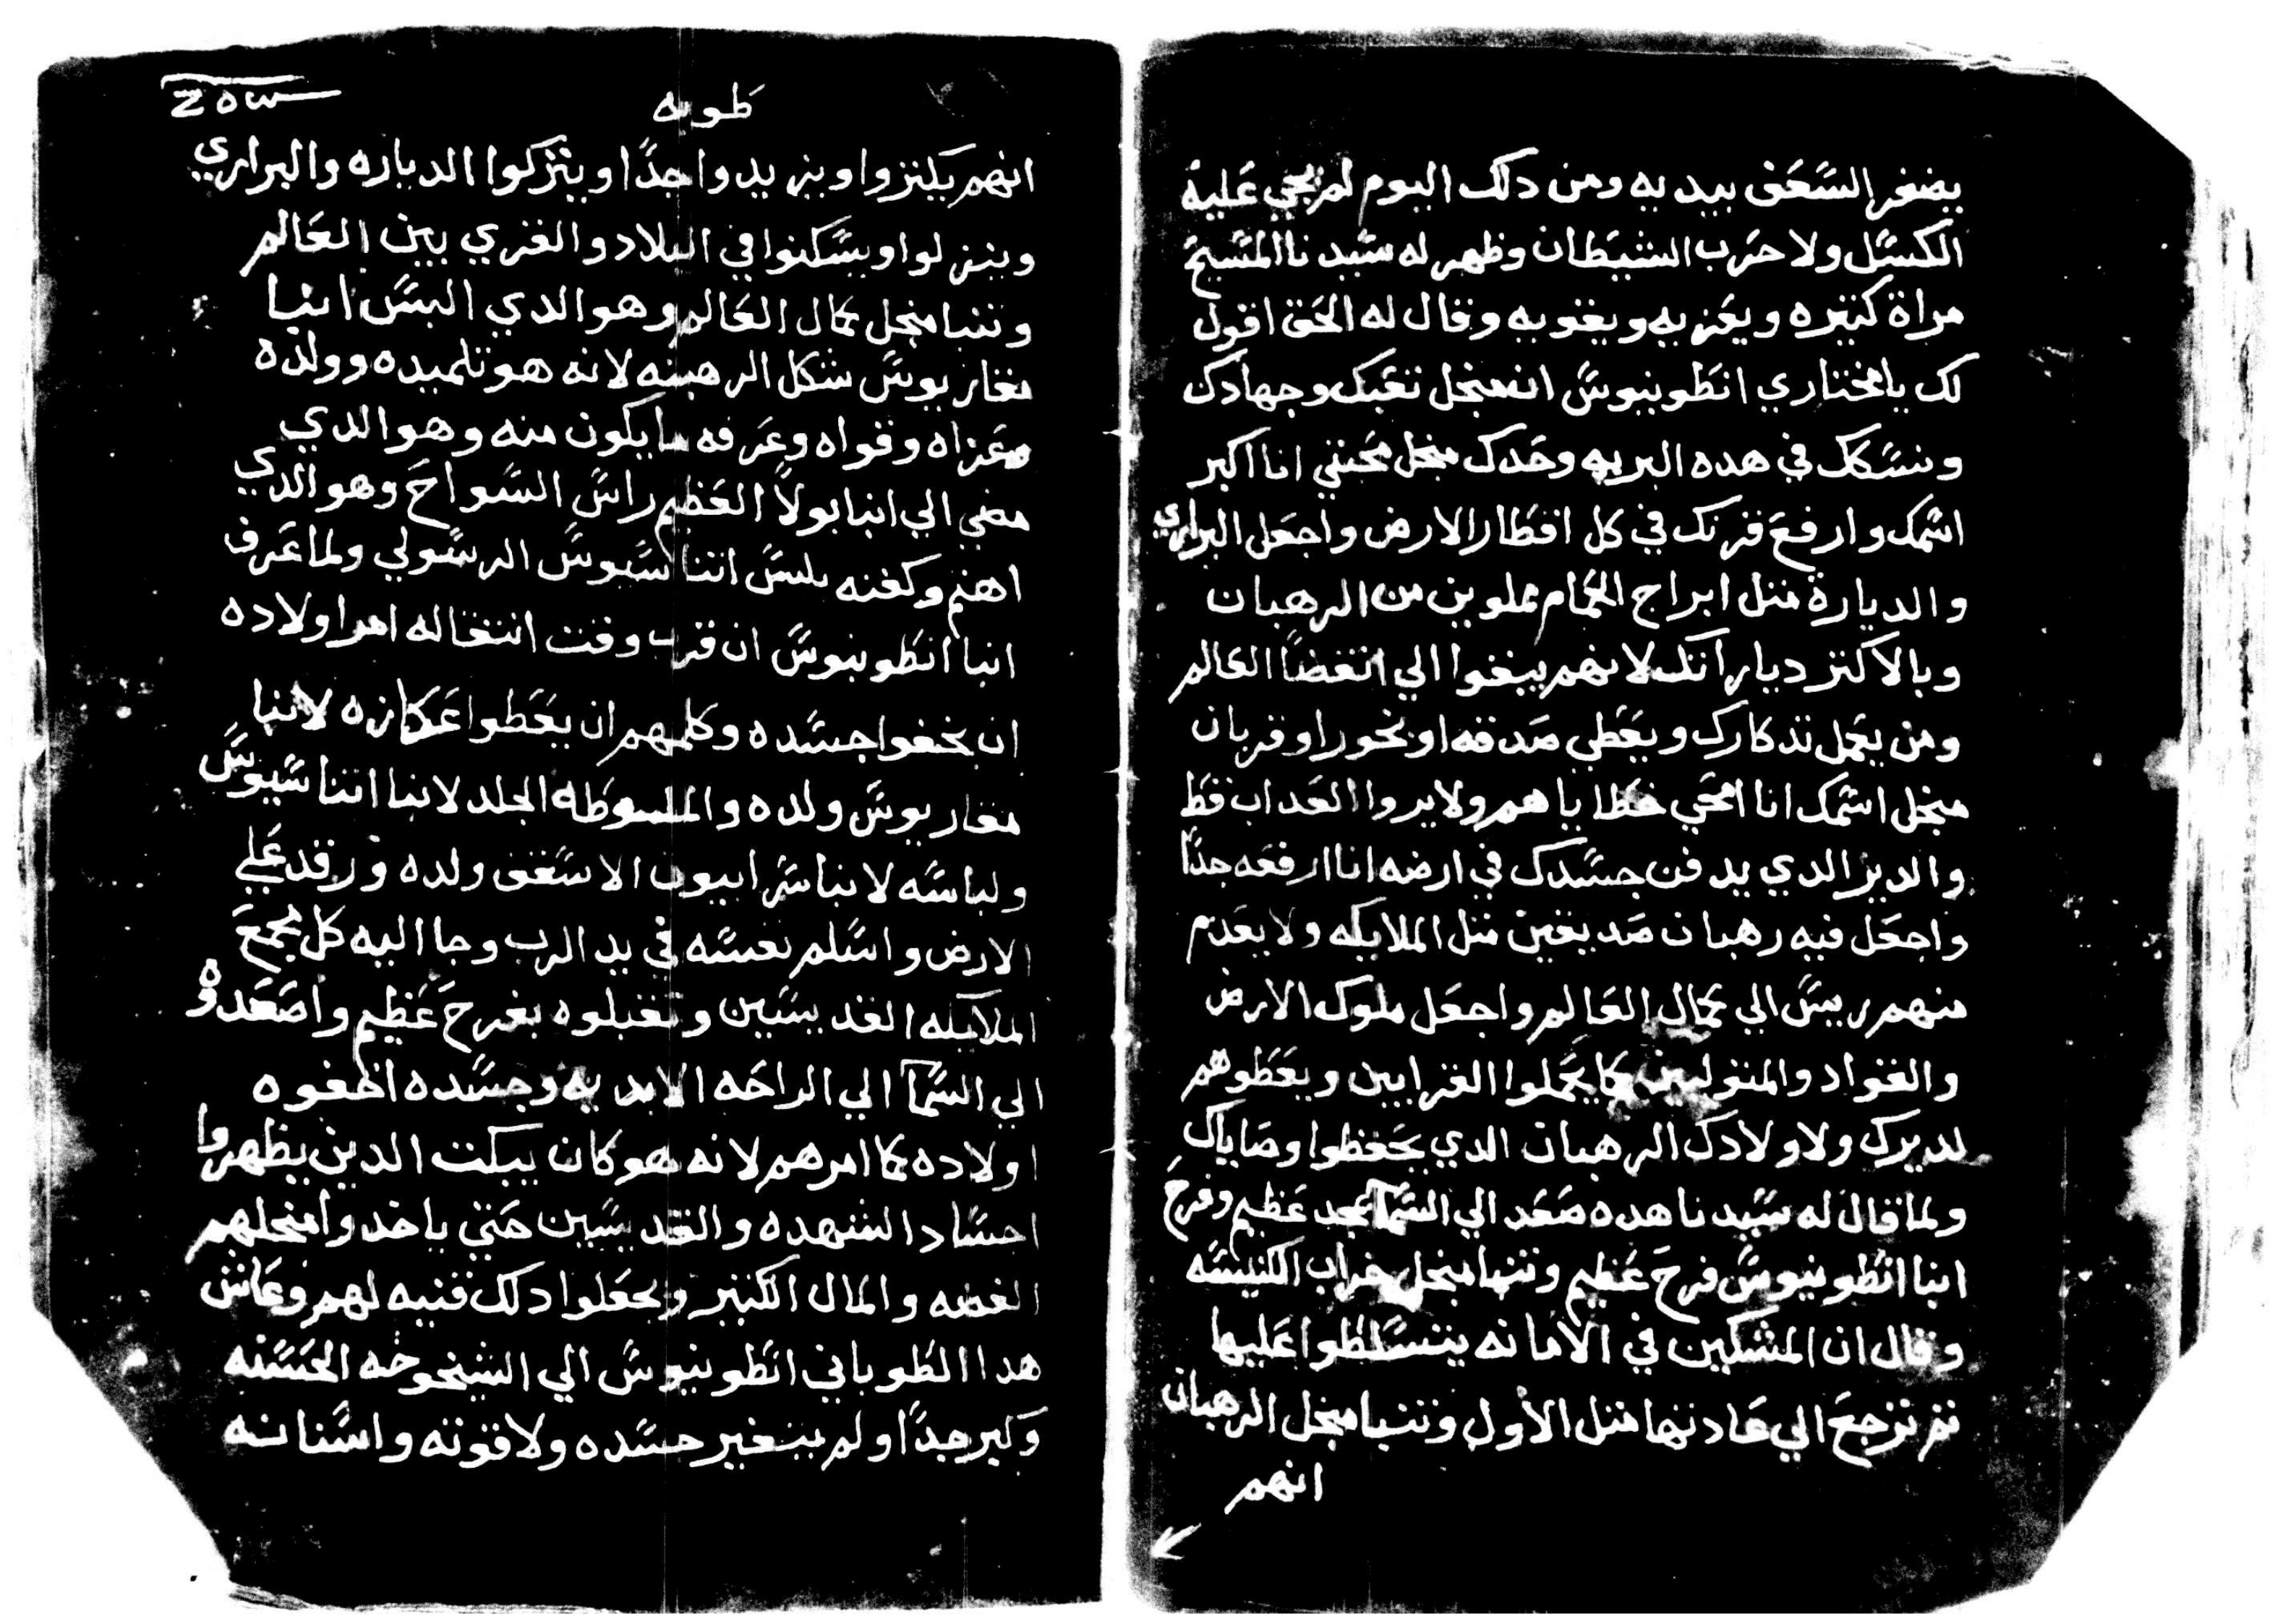 يضفر السَعَف بيديه ومن دلك اليوم لم يجي عَليه
الكسَل ولا حرَب الشيطان وظهر له سَيدنا المسَيح
مراة كتيره ويعَزيه ويقويه وقال له الحَق اقول
لك يا مختاري انطونيوسَ ان منجل تعَبك وجهادك
ونسَكك في هده البريه وحَدك منجل محَبتي انا اكبر
اسَمك وارفعَ قرنك في كل اقطار الارض واجعَل البراري
والديارة متل ابراج الحَمام مملوين من الرهبان
وبالاكتر دياراتك لانهم يبقوا الي انقضا العَالم
ومن يعَمل تدكارك ويعَطي صَدقه او بخورا وقربان
منجل اسَمك انا امحَي خطاياهم ولا يروا العَداب قط
والدير الدي يدفن جسَدك في ارضه انا ارفعَه جدًا
واجعَل فيه رهبان صَديقين متل الملايكه ولا يعَدم
منهم رييسَ الي كمال العَالم واجعَل ملوك الارض
والقواد والمتوليين يعَملوا القرابين ويعَطوهم
لديرك ولاولادك الرهبان الدي يحَفظوا وصَاياك
ولما قال له سَيدنا هده صَعَد الي السَما بمجد عَظيم وفرحَ
انبا انطونيوسَ فرحَ عَظيم وتنبا منجل خراب الكنيسَه
وقال ان المشكين في الامانه يتسَلطوا عَليها
تم ترجعَ الي عَادتها متل الاول وتنبا منجل الرهبان
انهم
طوبه
انهم يكتروا ويزيدوا جدًا ويتركوا الدياره والبراري
وينزلوا ويسَكنوا في البلاد والقري بين العَالم
وتنبا منجل كمال العَالم وهو الدي البسَ انبا
مقاريوسَ شكل الرهبنه لانه هو تلميده وولده
وعَزاه وقواه وعَرفه ما يكون منه وهو الدي
مضي الي انبا بولا العَظيم راسَ السَواحَ وهو الدي
اهتم وكفنه بلبسَ اتناسَيوسَ الرسَولي ولما عَرف
انبا انطونيوسَ ان قرب وقت انتقاله امر اولاده
ان يخفوا جسَده وكلمهم ان يعَطوا عَكازه لانبا
مقاريوسَ ولده والملسوطه الجلد لانبا اتناسَيوسَ
ولباسَه لانبا سَرابيون الاسَقف ولده ورقد عَلي
الارض واسَلم نفسَه في يد الرب وجا اليه كل مجمعَ
الملايكه القديسَين وتقبلوه بفرحَ عَظيم واصَعَدوه
الي السَما الي الراحَه الابديه وجسَده اخفوه
اولاده كما امرهم لانه هو كان يبكت الدين يظهروا
اجسَاد الشهده والقديسَين حَتي ياخدوا منجلهم
الفضه والمال الكتير ويجعَلوا دلك قنيه لهم وعَاش
هدا الطوباني انطونيوسَ الي الشيخوخه الحَسَنه
وكبر جدًا ولم يتغير جسَده ولا قوته واسَنانه